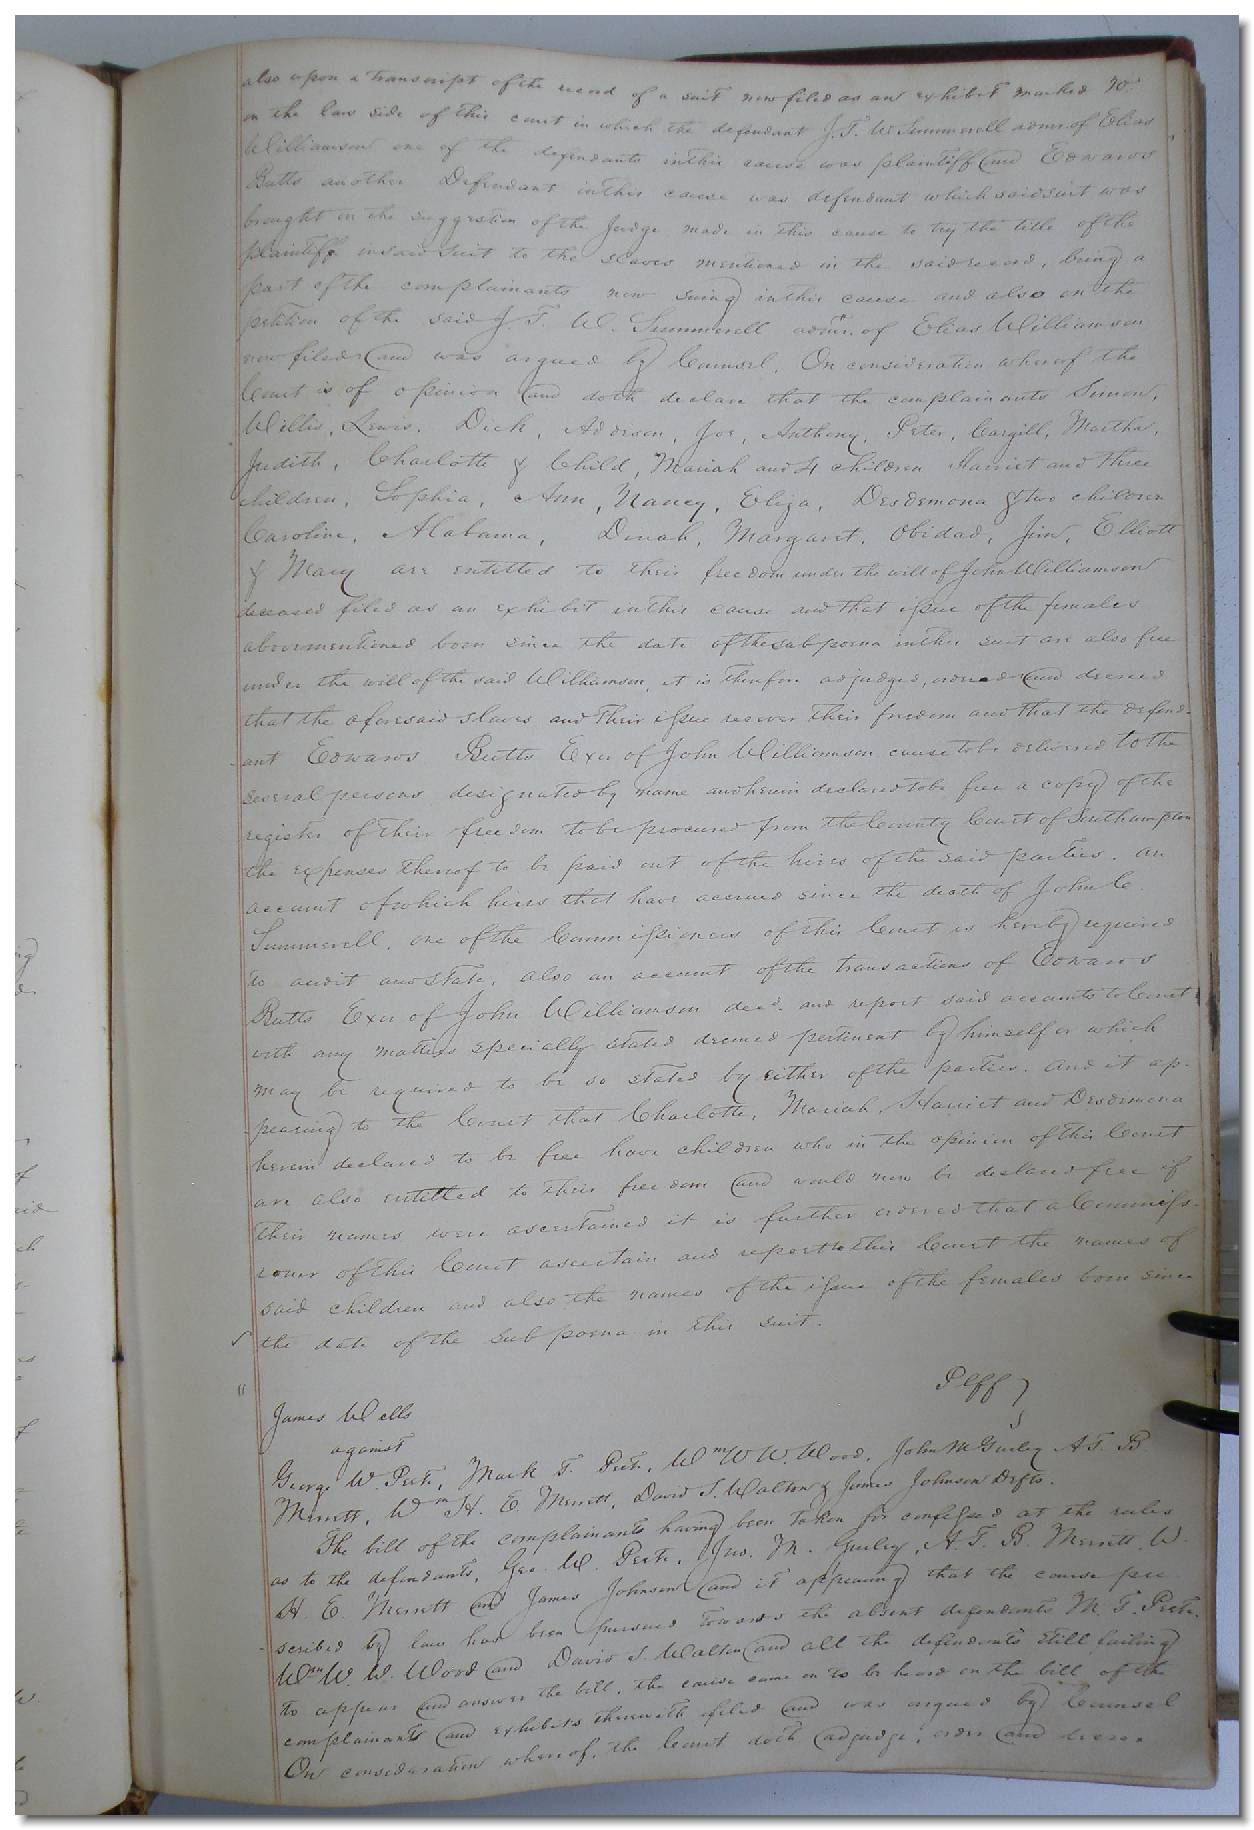 also upon a transcript of the record of a suit now filed as an exhibit marked
on the law side of this court in which the defendant J. T. W. Summerell admr. of Elias
Williamson one of the defendants in this cause was plaintiff and Edwards
Butts another Defendant in this cause was defendant which said suit was
brought on the suggestion of the Judge made in this cause to try the title of the
plaintiff in said suit to the slaves mentioned in the said record, being a
part of the complainants now suing in this cause and also on the
petition of the said J. T. W. Summerell admr. of Elias Williamson
now filed and was argued by Counsel. On consideration whereof the
Court is of opinion and doth declare that the complainants Simon,
Willis, Lewis, Dick, Addison, Joe, Anthony, Peter, Cargill, Martha,
Judith, Charlotte & Child, Mariah and 4 children Harriet and three
children, Sophia, Ann, Nancy, Eliza, Desdemona & two children
Caroline, Alabama, Dinah, Margaret, Obidad, Jim, Elliott
& Mary are entitled to their freedom under the will of John Williamson
deceased filed as an exhibit in this cause and that issue of the females
abovementioned born since the date of the subpoena in this suit are also free
under the will of the said Williamson, it is therefore adjudged, ordered and decreed
that the aforesaid slaves and their issue recover their freedom and that the defend-
ant Edwards Butts Exer of John Williamson cause to be delivered to the
several persons designated by name and herein declared to be free a copy of the
register of their freedom to be procured from the County Court of Southampton
the expenses thereof to be paid out of the hires of the said parties. an
account of which hires that have accrued since the death of John C.
Summerell, one of the Commissioners of this Court is hereby required
to audit and state, also an account of the transactions of Edwards
Butts Exer of John Williamson decd. and report said accounts to Court
with any matters specially stated deemed pertinent by himself or which
may be required to be so stated by either of the parties. And it ap-
pearing to the Court that Charlotte, Mariah, Harriet and Desdemona
herein declared to be free have children who in the opinion of this Court
are also entitled to their freedom and would now be declared free if
their names were ascertained it is further ordered that a Commiss-
ioner of this Court ascertain and report to this Court the names of
said children and also the names of the issue of the females born since
the date of the subpoena in this suit.
Plff
James Wells
against
George W. Peete, Mark T. Peete, Wm W. W. Wood, John M Gurley A. T. B.
Merritt, Wm H. E. Merritt, David S. Walton & James Johnson Defts.
The bill of the complainants having been taken for confessed at the rules
as to the defendants, Geo. W. Peete, Jno. M. Gurley, A. T. B. Merritt, W.
H. E. Merritt and James Johnson and it appearing that the course pre
scribed by law has been pursued towards the absent defendants M. T. Peete,
Wm W. W. Wood and David S. Walton and all the defendants still failing
to appear and answer the bill, the cause came on to be heard on the bill of the
complainants and exhibits therewith filed and was argued by Counsel
On consideration whereof, the Court doth adjudge, order and decree